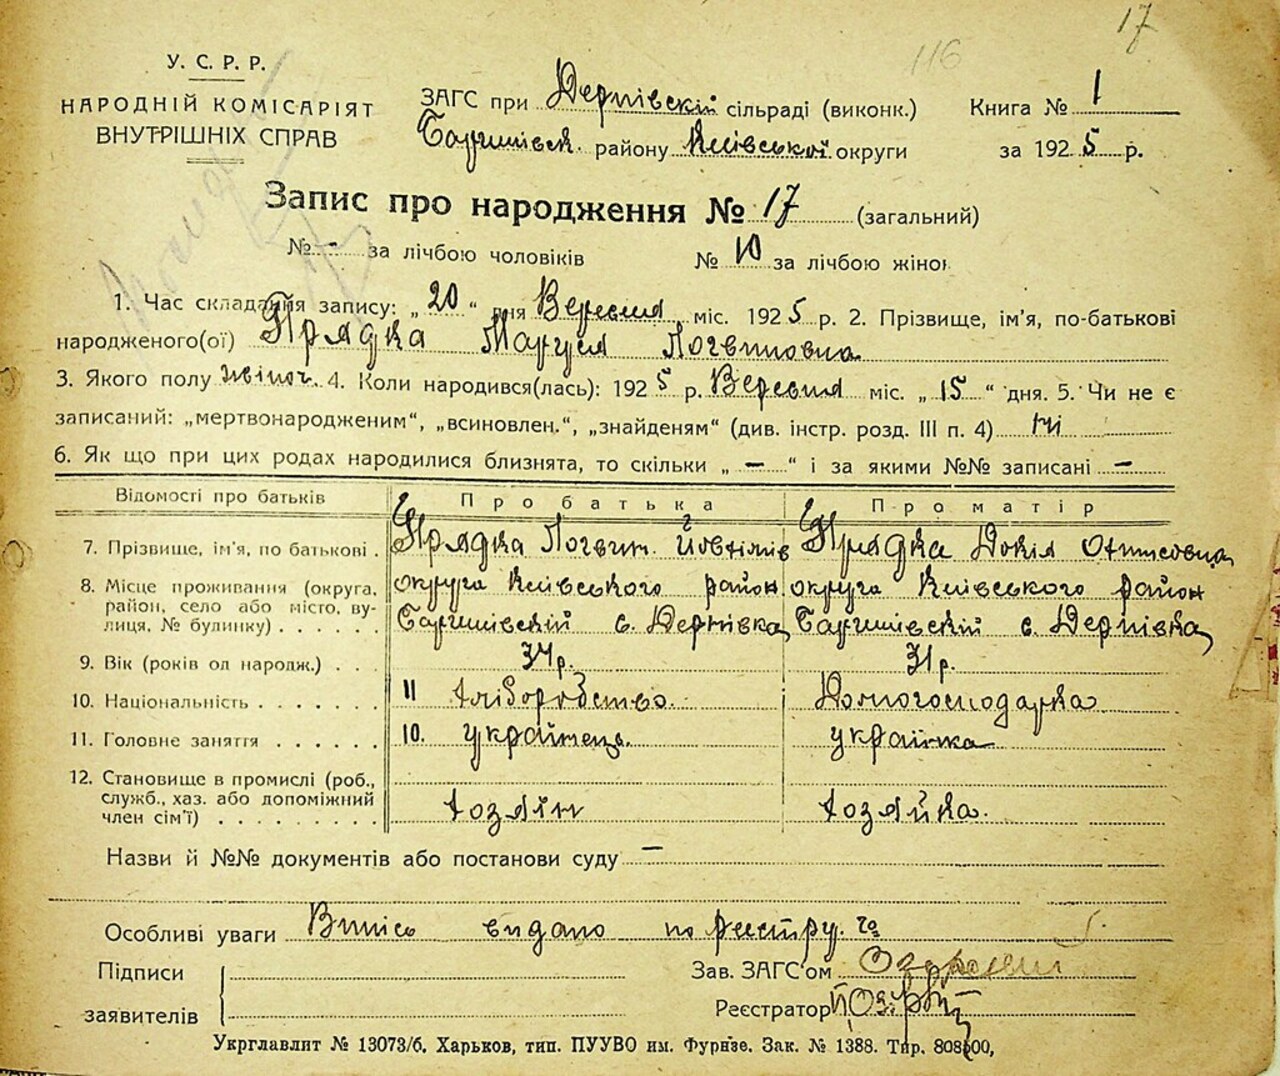 17
116
У. С. Р. Р.
НАРОДНІЙ КОМІСАРІЯТ
ВНУТРІШНІХ СПРАВ
ЗАГС при Дернівскій сільраді (виконк.)
Баришівськ. району Київської округи
Книга № 1
за 1925 р.
Запис про народження № 17 (загальний)
№ - за лічбою чоловіків № 10 за лічбою жінок
1. Час складання запису: „20“ дня Вересня міс. 1925 р. 2. Прізвище, ім'я, по-батькові
народженого(ої) Прядка Маруся Логвиновна
3. Якого полу жіноч. 4. Коли народився(лась): 1925 р. Вересня міс. „15“ дня. 5. Чи не є
записаний: „мертвонародженим“, „всиновлен.“, „знайденям“ (див. інстр. розд. III п. 4) ні
6. Як що при цих родах народилися близнята, то скільки „—“ і за якими №№ записані —
Відомості про батьків Про батька Про матір
7. Прізвище, ім'я, по батькові . Прядка Логвин. Йовтіхів Прядка Докія
8. Місце проживання (округа, округа Київського район округа Київського район
район, село або місто, ву- Баришівскій с. Дернівка Баришівскій с. Дернівка
лиця, № будинку) . . . . . .
9. Вік (років од народж.) . . . 34 р. 31 р.
10. Національність . . . . . . . 11 хліборобство. Домогосподарка
11. Головне заняття . . . . . . 10. українець. українка
12. Становище в промислі (роб.,
служб., хаз. або допоміжний хозяїн хозяйка.
член сім'ї) . . . . . . . . .
Назви й №№ документів або постанови суду —
Особливі уваги Випись видано по реєстру.
Підписи Зав. ЗАГС'ом
заявителів Реєстратор
Укрглавлит № 13073/б. Харьков, тип. ПУУВО им. Фурнзе. Зак. № 1388. Тир. 808000,